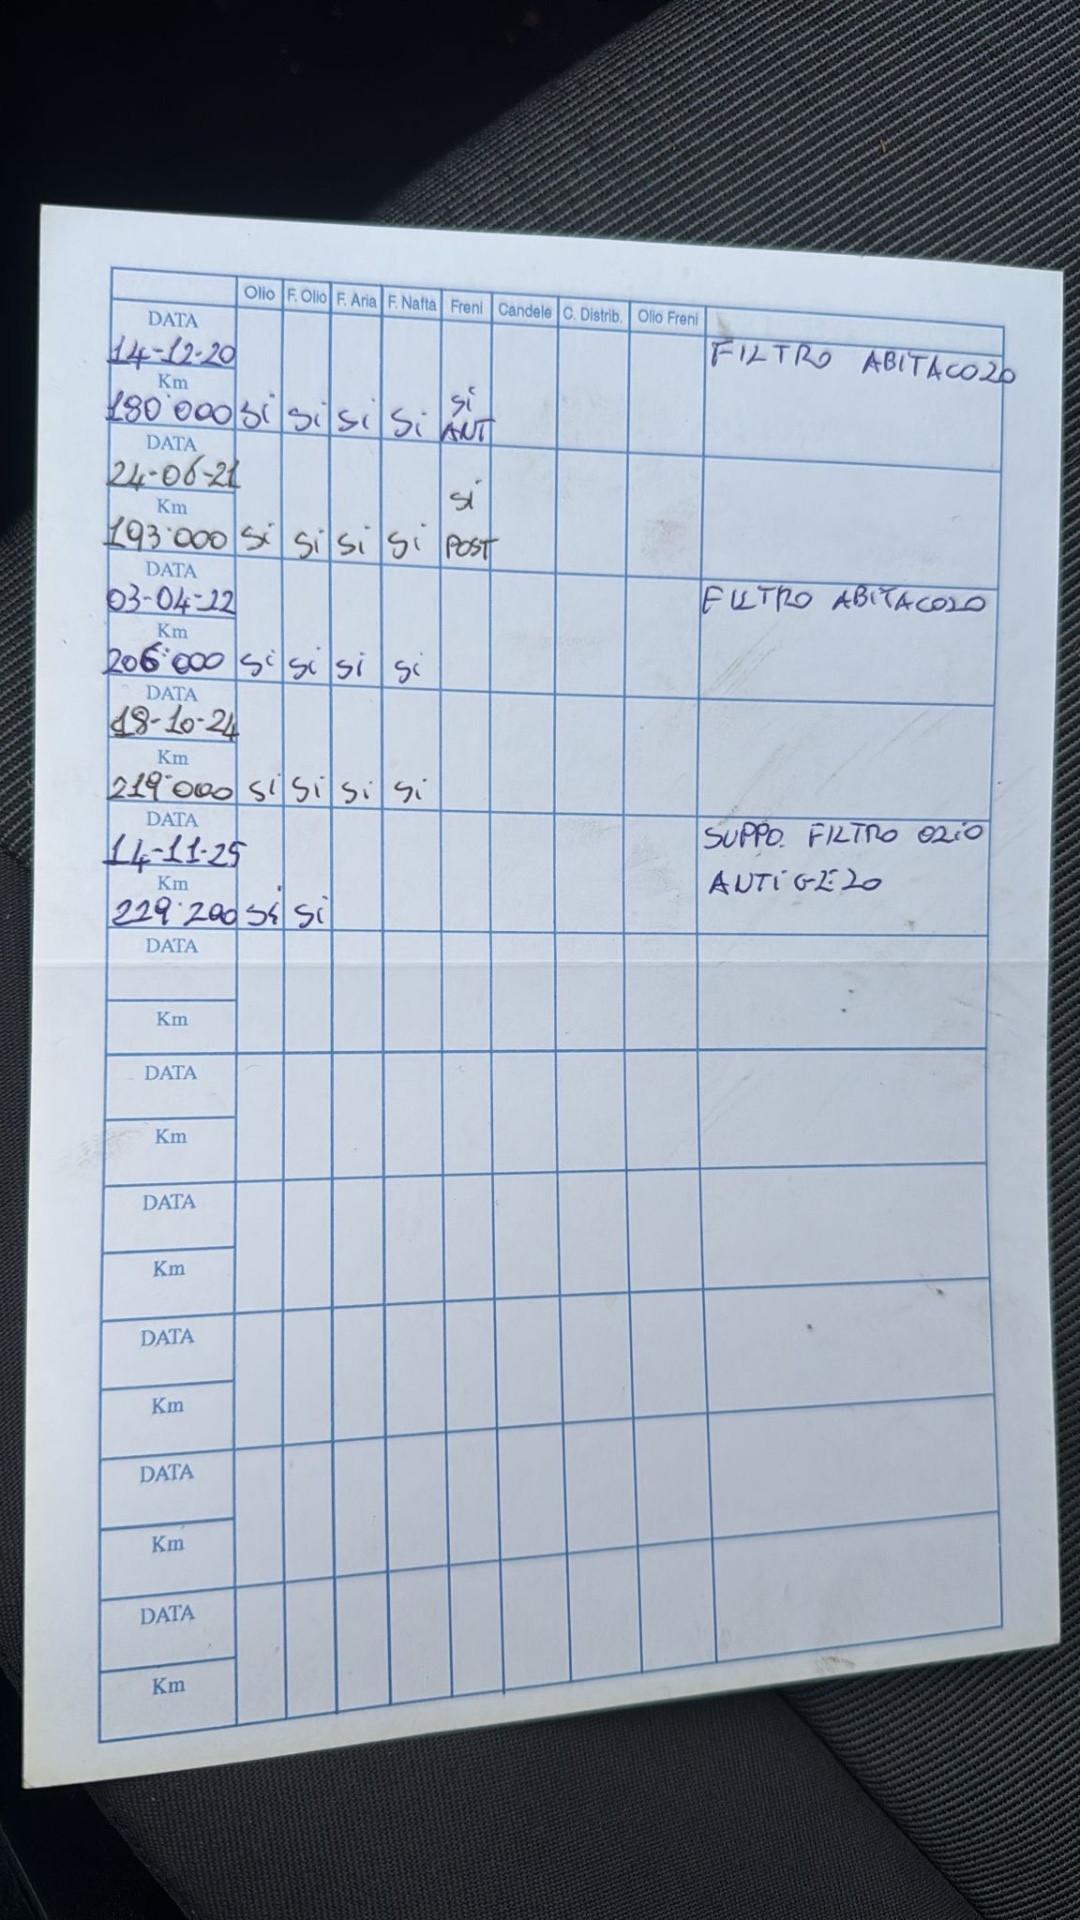 Olio F. Olio F. Aria F. Nafta Freni Candele C. Distrib. Olio Freni
DATA
14-12-20 FILTRO ABITACOLO
Km
180'000 Si Si Si Si Si ANT
DATA
24-06-21
Km
193'000 Si Si Si Si Si POST
DATA
03-04-22 FILTRO ABITACOLO
Km
206'000 Si Si Si Si
DATA
18-10-24
Km
219'000 Si Si Si Si
DATA
14-11-25 SUPPO. FILTRO OLIO
ANTIGELO
Km
229'200 Si Si
DATA
Km
DATA
Km
DATA
Km
DATA
Km
DATA
Km
DATA
Km